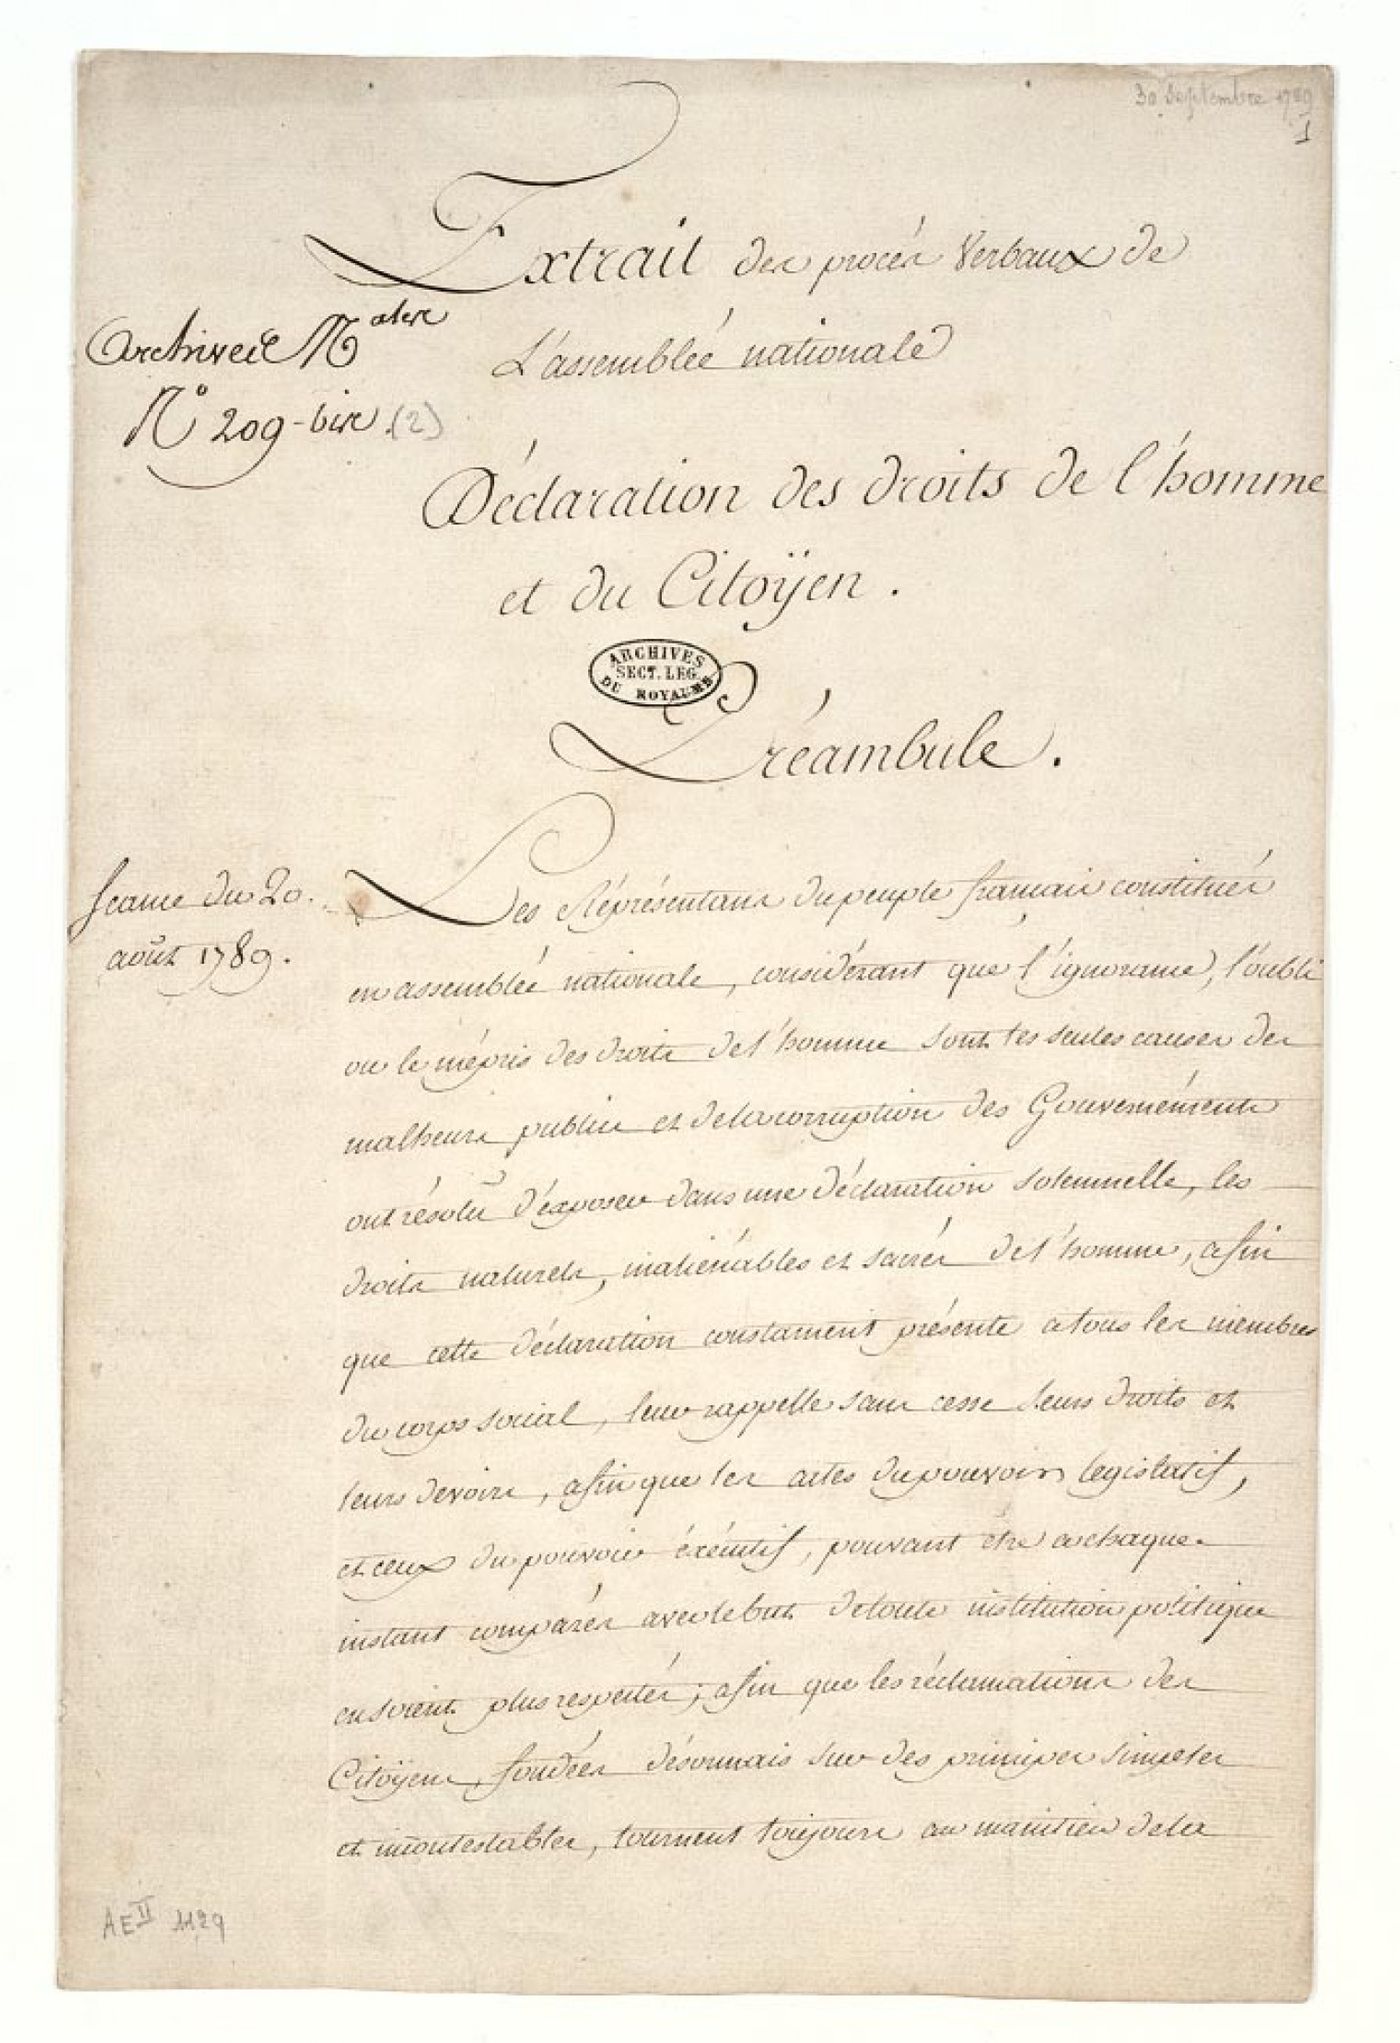 30 Septembre 1789
1
Extrait des procés Verbaux de
L'assemblée nationale
archives M
N° 209-bis (2)
Déclaration des droits de l'homme
et du Citoÿen.
ARCHIVES
SECT. LEG.
DU ROYAUME
Préambule.
Seance du 20.
août 1789.
Les Réprésentans du peuple francais constitués
en assemblée nationale, considérant que l'ignorance, l'oubli
ou le mépris des droits de l'homme sont les seules causes des
malheurs publics et de la corruption des Gouvernéments
ont résolu d'éxposer dans une déclaration solemnelle, les
droits naturels, inaliénables et sacrés de l'homme, afin
que cette déclaration constament présente a tous les membres
du corps social, leur rappelle sans cesse leurs droits et
leurs devoirs, afin que les actes du pouvoir legislatif,
et ceux du pouvoir éxécutif, pouvant être a chaque
instant comparés avec le but de toute institution politique
en soient plus respectés; afin que les réclamations des
Citoÿens, fondées désormais sur des principes simples
et incontestables, tournent toujours au maintien de la
AE II 1129